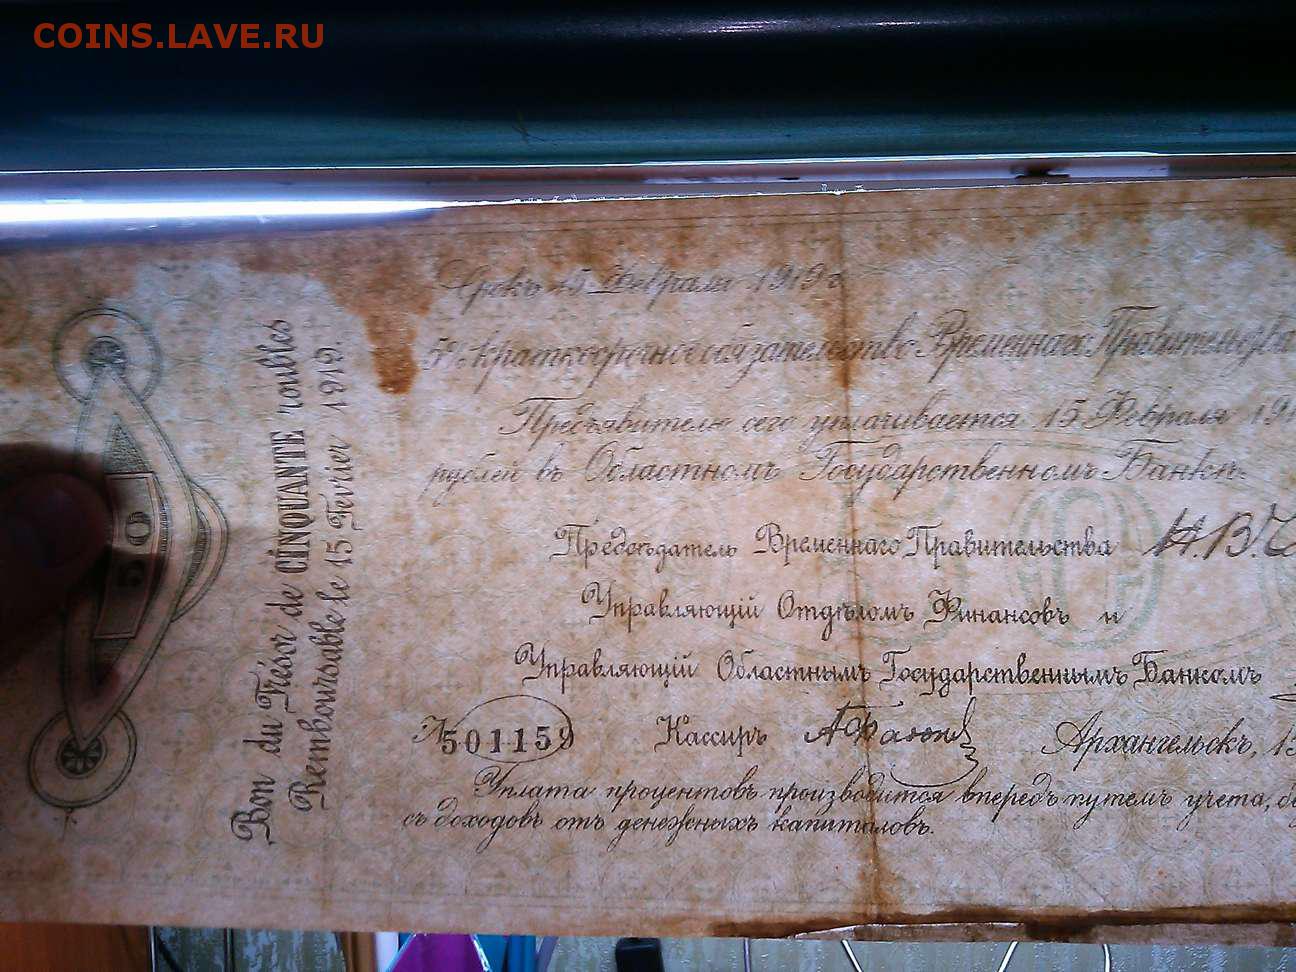 COINS.LAVE.RU
Срокъ 15 Февраля 1919 г.
5% краткосрочное обязательство Временнаго Правительства
Предъявителю сего уплачивается 15 Февраля
рублей въ Областномъ Государственномъ Банкѣ.
Предсѣдатель Временнаго Правительства Н.В.
Управляющій Отдѣломъ Финансовъ и
Управляющій Областнымъ Государственнымъ Банкомъ
№ 501159 Кассиръ Архангельскъ, 15
Уплата процентовъ производится впередъ путемъ учета,
съ доходовъ отъ денежныхъ капиталовъ.
Bon du Trésor de CINQUANTE roubles
Remboursable le 15 Fevrier 1919.
50
50